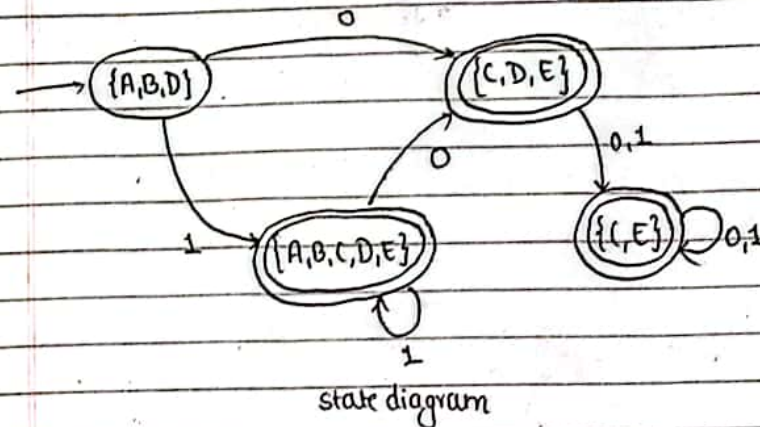 0
{A,B,D}
{C,D,E}
0
0,1
1
{A,B,C,D,E}
{C,E}
0,1
1
state diagram